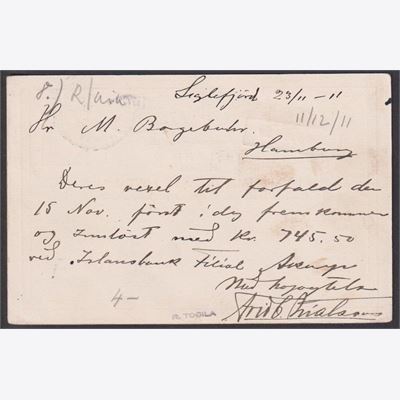 Siglefjörd 23/11 - 11
11/12/11
Hr M. Bogebuhr.
Hamburg
Deres vexel til forfald den
15 Nov. först i dag fremkommer
og indlöst med Kr. 745.50
ved Islansbank Filial
Med
4-
R. TOBILA